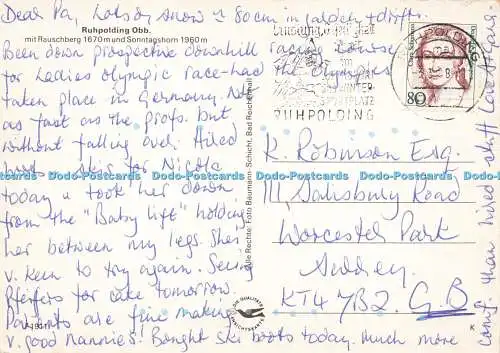 Dear Pa, Lots of snow - 80cm in garden + drifts.
Ruhpolding Obb.
mit Rauschberg 1670 m und Sonntagshorn 1960 m
Been down prospective downhill racing course
for Ladies olympic race - had the Olympics
taken place in Germany. Not
as fast as the profs. but
without falling over. Hired
skis for Nicola
today & took her down
from the "Baby lift" holding
her between my legs. She's
v. keen to try again. Seeing
Pfeifers for cake tomorrow.
Parents are fine making
v. good nannies. Bought ski boots today. Much more
comfy than hired stuff. Love Alison
Alle Rechte: Foto Baumann-Schicht, Bad Reichenhall
DIE QUALITÄTS
ANSICHTSKARTE
K
RUHPOLDING
WINTER-
SPORTPLATZ
RUHPOLDING
80
K. Robinson Esq.
111, Salisbury Road
Worcester Park
Surrey
KT4 7BZ. G.B
Dodo-Postcards Dodo-Postcards Dodo-Postcards Dodo-Postcards